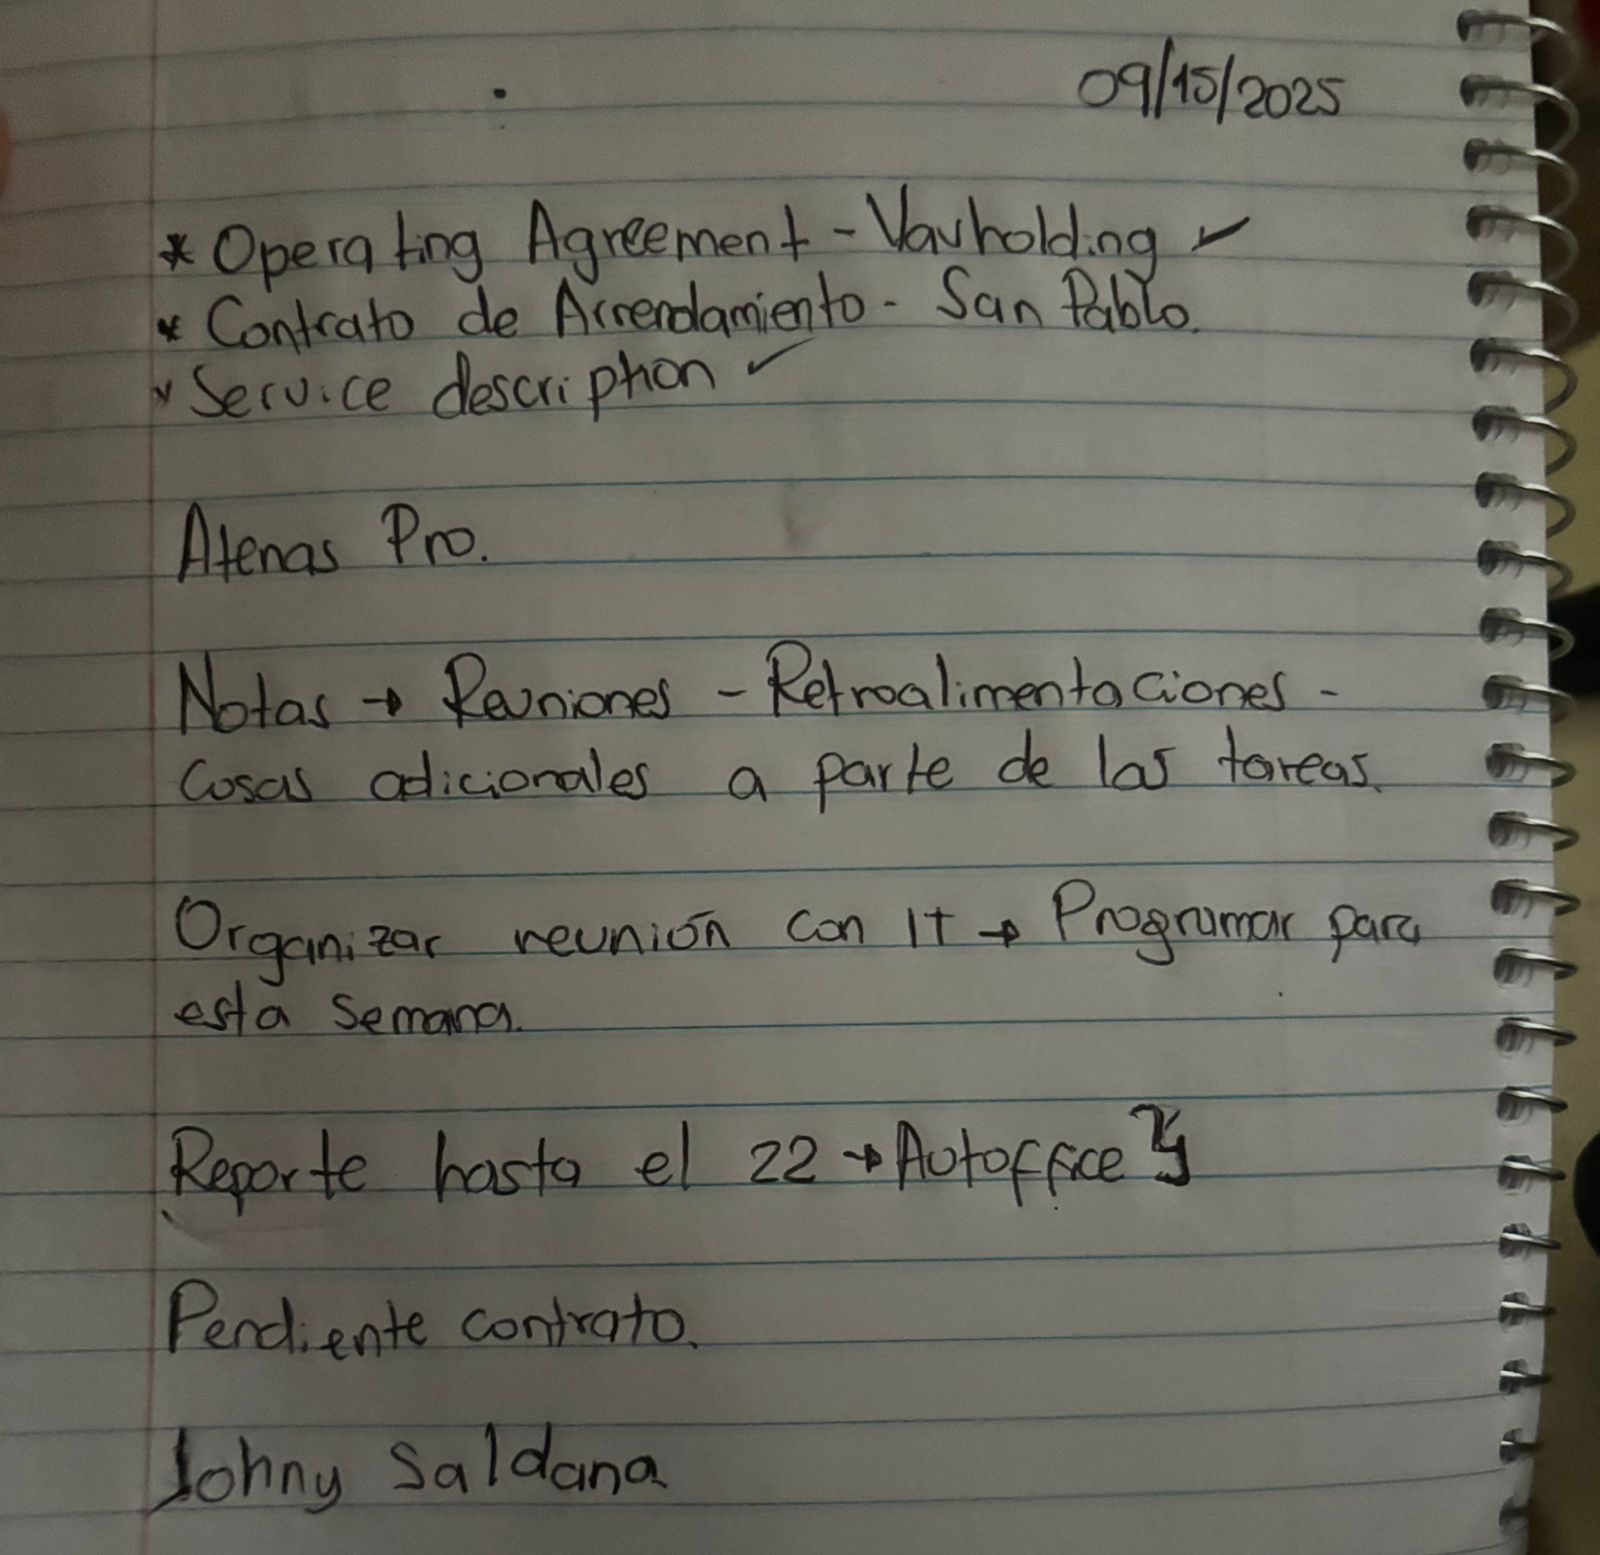 09/15/2025
* Operating Agreement - Vavholding ✓
* Contrato de Arrendamiento - San Pablo.
* Service description ✓
Atenas Pro.
Notas → Reuniones - Retroalimentaciones -
Cosas adicionales a parte de las tareas.
Organizar reunión con IT → Programar para
esta semana.
Reporte hasta el 22 → Autoffice
Pendiente contrato.
Johny Saldana